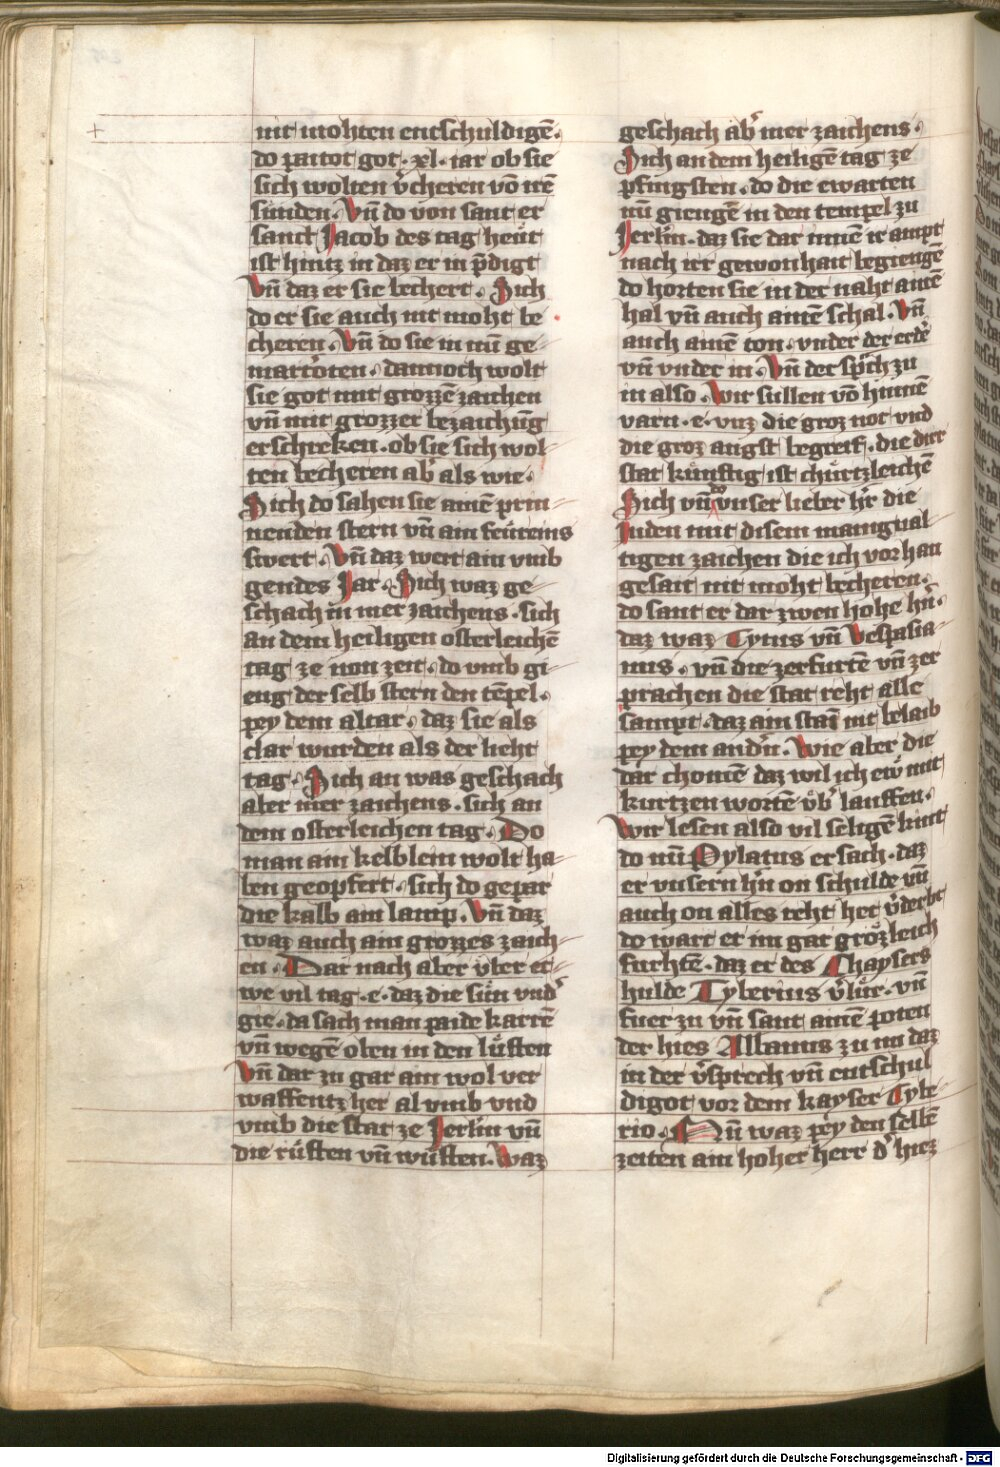 nit mohten entschuldigē.
do paitot got · xl · iar ob sie
sich wolten v̾cheren vō irē
sünden. Vn̄ do von sant er
sanct Jacob des tag heut
ist hintz in daz er in p̄digt
Vn̄ daz er sie bechert. Sich
do er sie auch nit moht be
cheren. Vn̄ do sie in nū ge
mart̾oten. dannoch wolt
sie got mit grozzē zaichen
vn̄ mit grozzer bezaichūg
erschreken. ob sie sich wol
ten becheren ab̾ als wie.
Sich do sahen sie ainē prin
nenden stern vn̄ ain feüreins
swert. Vn̄ daz wert ain vmb
gendes Jar. Sich waz ge
schach in mer zaichens. sich
an dem heiligen osterleichē
tag ze non zeit. do vmb gi
eng der selb stern den tēpel.
pey dem altar. daz sie als
clar wurden als der lieht
tag. Sich an was geschach
aber mer zaichens. sich an
dem osterleichen tag. Do
man ain kelblein wolt ha
ben geopfert. sich do gepar
die kalb ain lamp. Vn̄ daz
waz auch ain grozzes zaich
en. Dar nach aber vber et
we vil tag. e. daz die sün vnd̾
gie. da sach man paide karrē
vn̄ wegē olen in den lüften
Vn̄ dar zu gar ain wol ver
waffentz her al vmb vnd
vmb die stat ze Jerl̄m vn̄
die rüsten vn̄ wüsten. Waz
geschach ab̾ mer zaichens.
Sich an dem heiligē tag ze
pfingsten. do die ewarten
nū giengē in den tempel zu
Jerl̄m. daz sie dar innē ir ampt
nach irr gewonhait begiengē
do horten sie in der naht ainē
hal vn̄ auch ainē schal. Vn̄
auch ainē ton. vnder der erdē
vn̄ vnder in. Vn̄ der sp̾ch zu
in also. Wir sullen vō hinnē
varn. e. vnz die groz not vnd
die groz angst begreif. die dirr
stat künftig ist chürtzleichē
Sich vn̄ do vnser lieber h̾r die
Juden mit disem manigual
tigen zaichen die ich vor han
gesait nit moht becheren.
do sant er dar zwen hohe h̾n.
daz waz Tytus vn̄ Vespasia
nus. vn̄ die zerfurtē vn̄ zer
prachen die stat reht alle
sampt. daz ain stai nit belaib
pey dem and̾n. Wie aber die
dar chomē daz wil ich ew mit
kurtzen wortē v̈b̾ lauffen.
Wir lesen also vil seligē kint
do nū Pylatus ersach. daz
er vnsern h̾n on schulde vn̄
auch on alles reht het v̾derbt
do wart er im gar grözleich
furhtē. daz er des Chaysers
hulde Tyberius v̾lür. vn̄
fuer zu vn̄ sant ainē poten
der hies Albanus zu im daz
in der v̾sprech vn̄ entschul
digot vor dem kayser Tybe
rio. Nū waz pey den selbē
zeiten ain hoher herr d̾ hiez
Digitalisierung gefördert durch die Deutsche Forschungsgemeinschaft - DFG